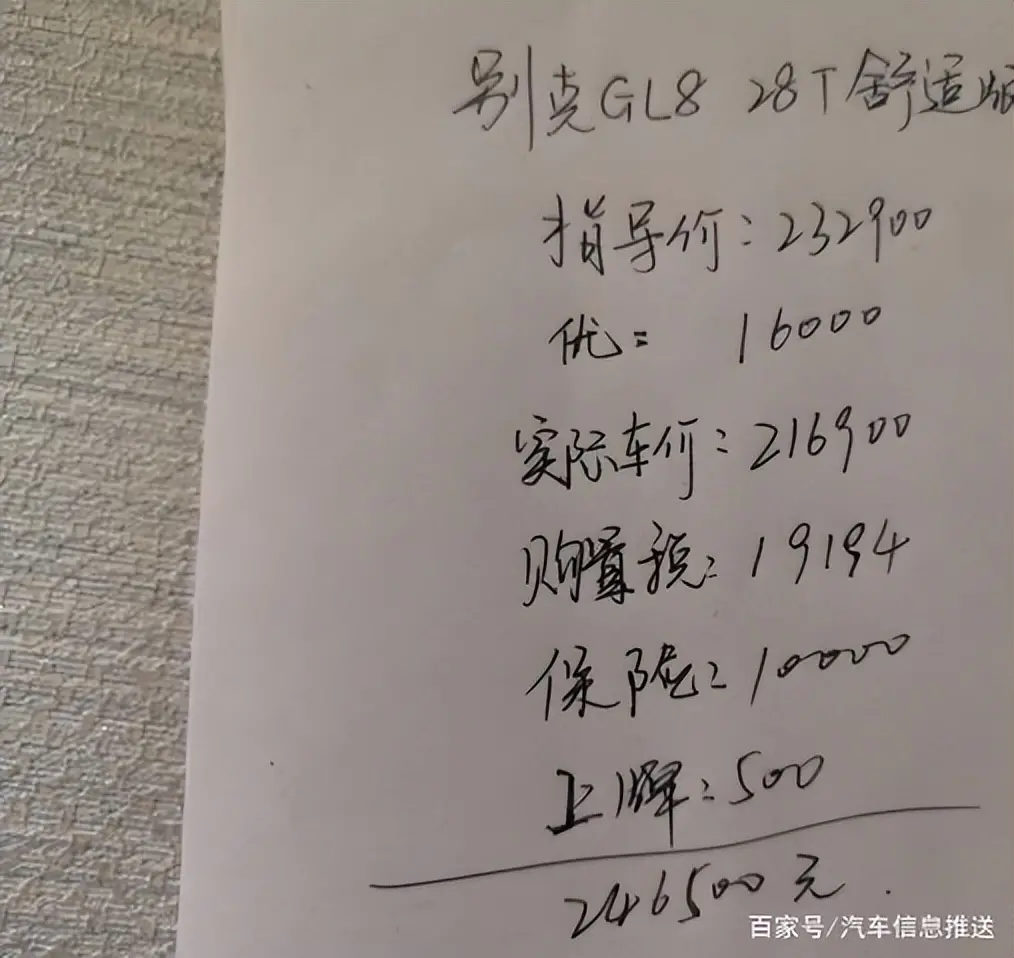 别克GL8 28T舒适版
指导价:232900
优: 16000
实际车价:216900
购置税:19194
保险:10000
上牌:500
246500元.
百家号/汽车信息推送